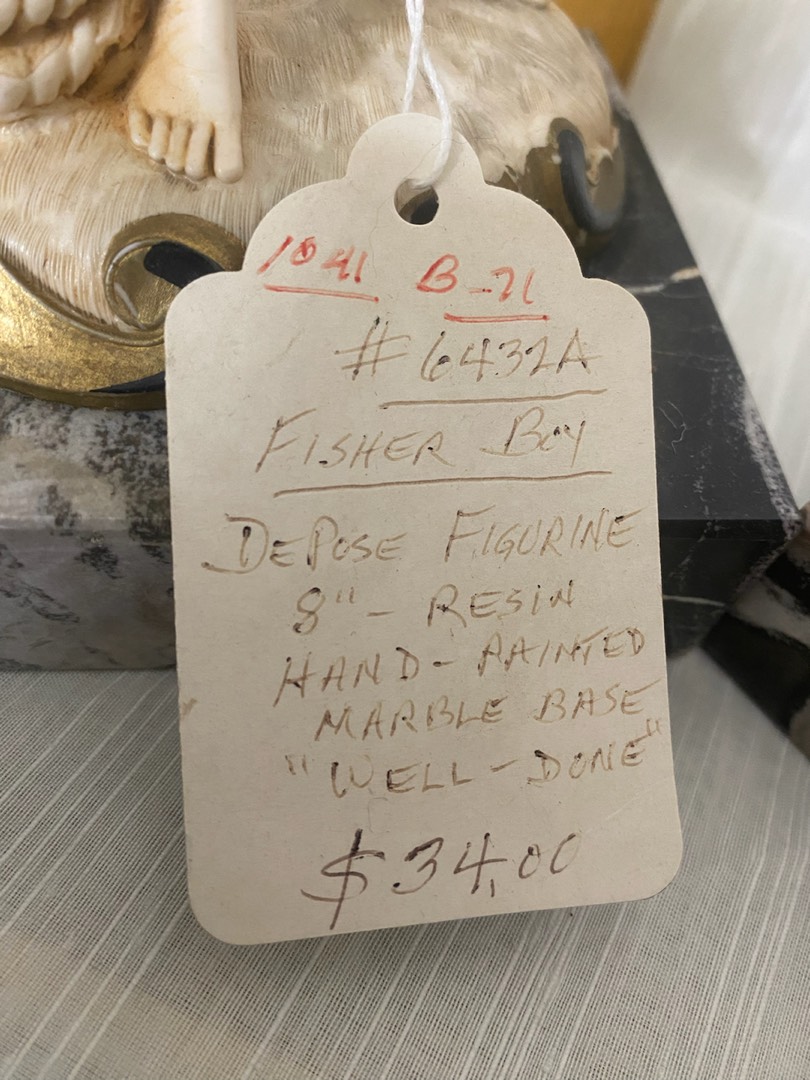 1041 B-71
#6432A
FISHER BOY
DEPOSE FIGURINE
8" - RESIN
HAND-PAINTED
MARBLE BASE
"WELL-DONE"
$34.00